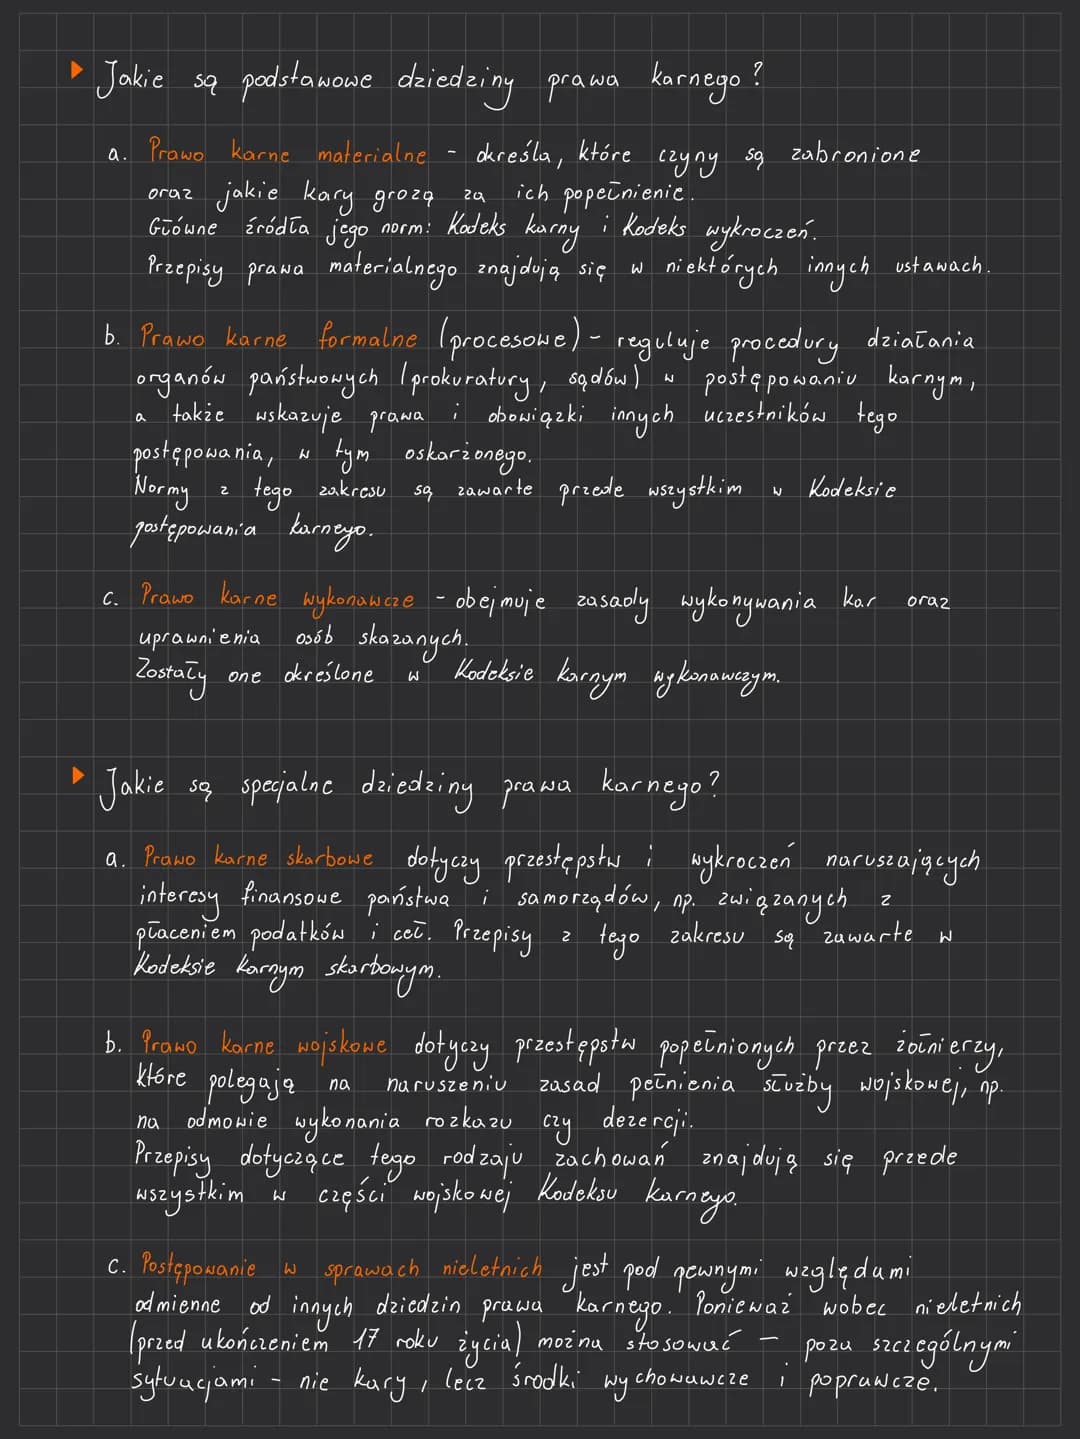 Jakie są podstawowe dziedziny prawa karnego?
a. Prawo karne materialne - określa, które czyny są zabronione
oraz jakie kary grożą za ich popełnienie.
Główne źródła jego norm: Kodeks karny i Kodeks wykroczeń.
Przepisy prawa materialnego znajdują się w niektórych innych ustawach.
b. Prawo karne formalne (procesowe) - reguluje procedury działania
organów państwowych (prokuratury, sądów) w postępowaniu karnym,
a także wskazuje prawa i obowiązki innych uczestników tego
postępowania, w tym oskarżonego.
Normy z tego zakresu są zawarte przede wszystkim w Kodeksie
postępowania karnego.
c. Prawo karne wykonawcze - obejmuje zasady wykonywania kar oraz
uprawnienia osób skazanych.
Zostały one określone w Kodeksie karnym wykonawczym.
Jakie są specjalne dziedziny prawa karnego?
a. Prawo karne skarbowe dotyczy przestępstw i wykroczeń naruszających
interesy finansowe państwa i samorządów, np. związanych z
płaceniem podatków i ceł. Przepisy z tego zakresu są zawarte w
Kodeksie karnym skarbowym.
b. Prawo karne wojskowe dotyczy przestępstw popełnionych przez żołnierzy,
które polegają na naruszeniu zasad pełnienia służby wojskowej, np.
na odmowie wykonania rozkazu czy dezercji.
Przepisy dotyczące tego rodzaju zachowań znajdują się przede
wszystkim w części wojskowej Kodeksu karnego.
c. Postępowanie w sprawach nieletnich jest pod pewnymi względami
odmienne od innych dziedzin prawa karnego. Ponieważ wobec nieletnich
(przed ukończeniem 17 roku życia) można stosować - poza szczególnymi
sytuacjami - nie kary, lecz środki wychowawcze i poprawcze.